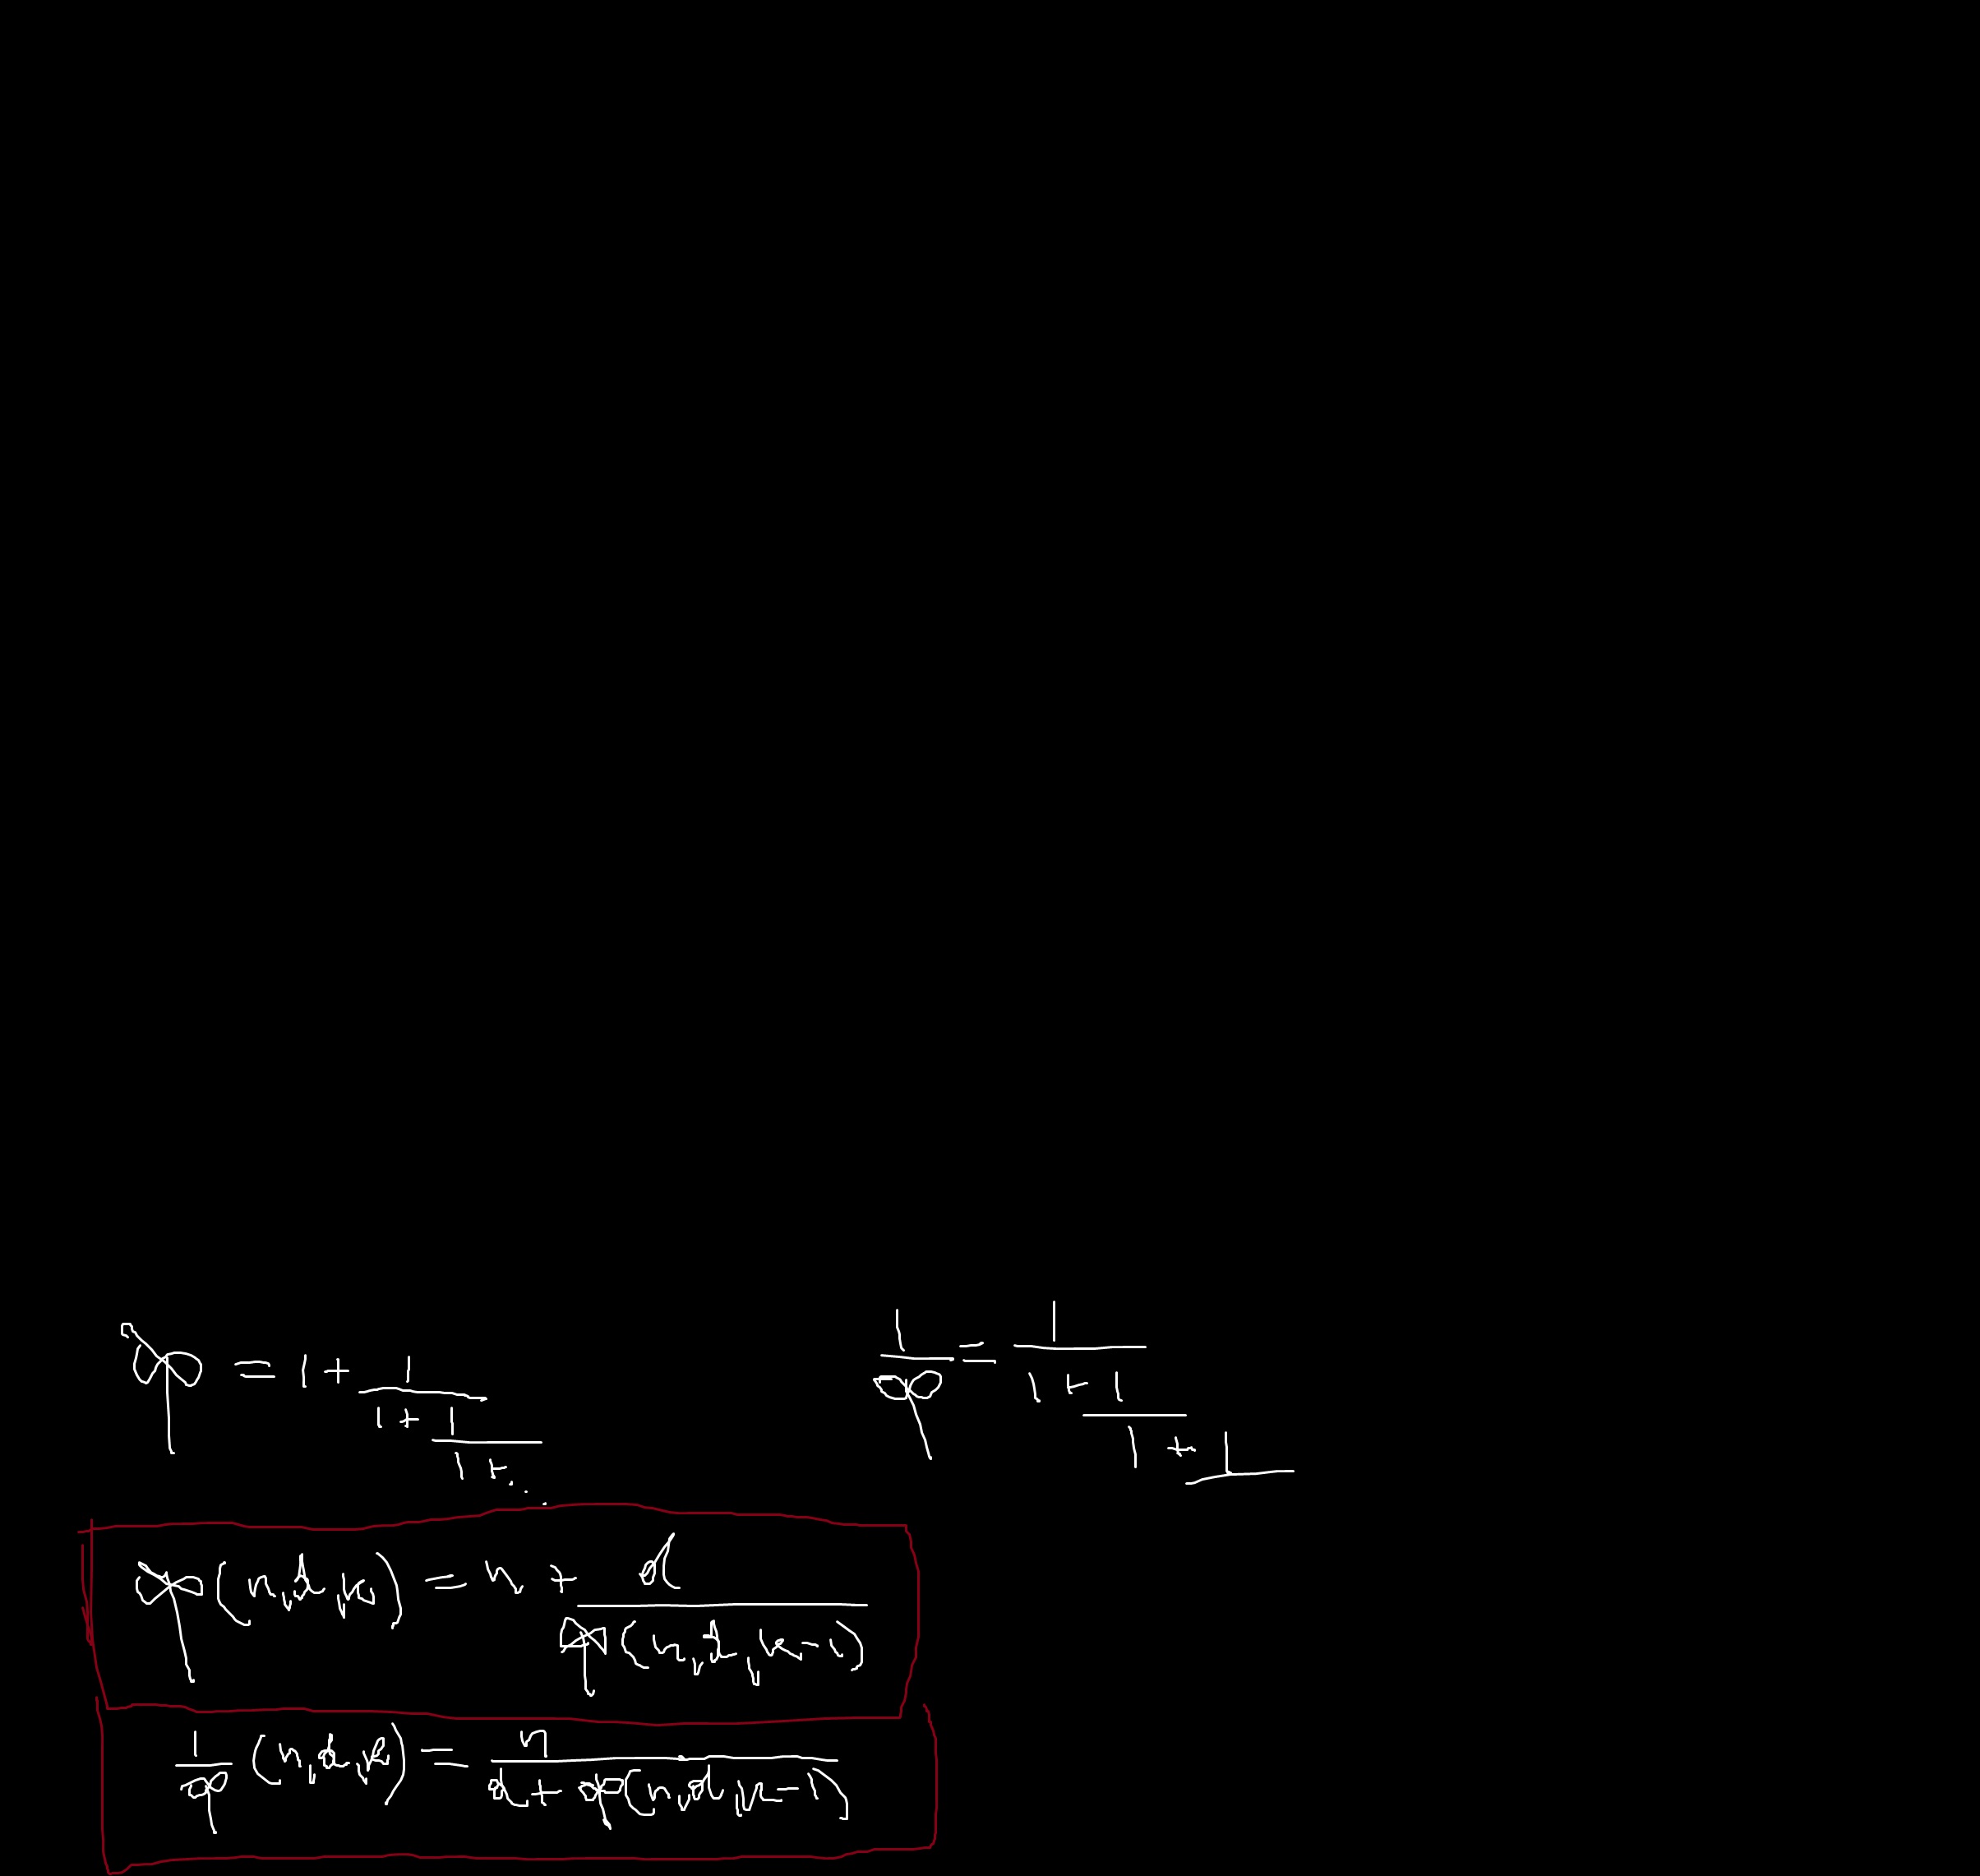 φ = 1 + 1/(1 + 1/(1 + ...
1/φ = 1/(1 + 1/(1 + 1/
φ(n,d,k) = n + d/φ(n,d,k-1)
1/φ (n,d,k) = n/(d + φ(n,d,k-1)